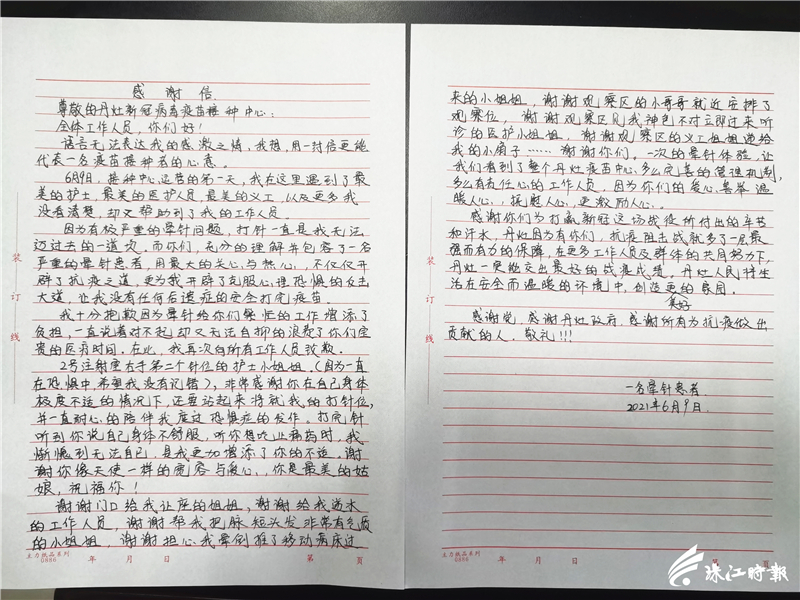 感谢信
尊敬的丹灶新冠病毒疫苗接种中心:
全体工作人员,你们好!
语言无法表达我的感激之情,我想,用一封信更能
代表一名疫苗接种者的心意。
6月9日,接种中心运营的第一天,我在这里遇到了最
美的护士,最美的医护人员,最美的义工,以及更多我
没看清楚,却又帮助到了我的工作人员。
因为有极严重的晕针问题,打针一直是我无法
迈过去的一道坎。而你们,充分的理解并包容了一名
严重的晕针患者,用最大的关心与热心,不仅仅开
辟了抗疫之道,更为我开辟了克服心理恐惧的
大道,让我没有任何后遗症的安全打完疫苗。
我十分抱歉因为晕针给你们繁忙的工作增添了
负担,一直说着对不起却又无法自抑的浪费了你们宝
贵的医疗时间。在此,我再次向所有工作人员致歉。
2号注射座右手第二个针位的护士小姐姐(因为一直
在恐惧中,希望我没有记错),非常感谢你在自己身体
极度不适的情况下,还要站起来将就我的打针位,
并一直耐心的陪伴我度过恐惧症的发作。打完针
听到你说自己身体不舒服,听你想吃止痛药时,我
惭愧到无法自已,是我更加增添了你的不适。谢
谢你像天使一样的宽容与爱心,你是最美的姑
娘,祝福你!
谢谢门口给我让座的姐姐,谢谢给我送水
的工作人员,谢谢帮我把脉短头发非常有气质
的小姐姐,谢谢担心我晕倒推了移动病床过
主力纸品系列
0866
年 月 日
第 页
装订线
来的小姐姐,谢谢观察区的小哥哥就近安排了
观察位,谢谢观察区见我神色不对立即过来听
诊的医护小姐姐,谢谢观察区的义工姐姐递给
我的小扇子……谢谢你们。一次的晕针体验,让
我们看到了整个丹灶疫苗中心多么完善的管理机制,
多么有责任心的工作人员,因为你们的爱心善举温
暖人心,抚慰人心,更激励人心。
感谢你们为打赢新冠这场战役所付出的辛苦
和汗水,丹灶因为有你们,抗疫阻击战就多了一层最
强而有力的保障,在更多工作人员及群体的共同努力下,
丹灶一定能交出最好的战役成绩。丹灶人民将生
活在安全而温暖的环境中,创造更美好的家园。
感谢党,感谢丹灶政府,感谢所有为抗疫做出
贡献的人,敬礼!!!
一名晕针患者
2021年6月9日
装订线
主力纸品系列
0866
年 月 日
页
珠江时报